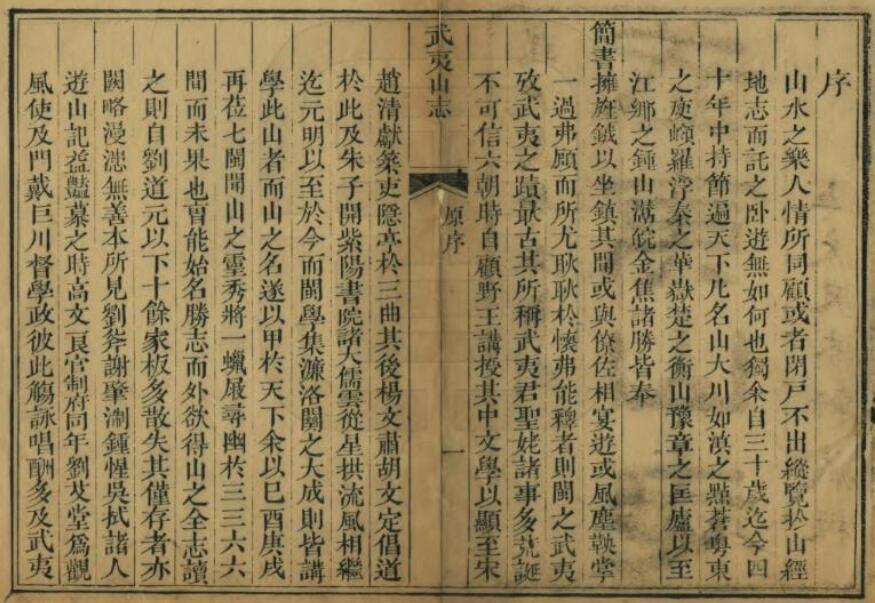 序
山水之樂人情所同顧或者閉戸不出縱覽於山經
地志而託之卧遊無如何也獨余自三十歲迄今四
十年中持節遍天下凡名山大川如滇之㸃蒼粤東
之庾嶺羅浮秦之華嶽楚之衡山豫章之匡廬以至
江鄉之鍾山灊皖金焦諸勝皆奉
簡書擁旌鉞以坐鎮其間或與僚佐相宴遊或風塵鞅掌
一過弗顧而所尤耿耿於懷弗能釋者則閩之武夷
攷武夷之蹟最古其所稱武夷君聖姥諸事多荒誕
不可信六朝時自顧野王講授其中文學以顯至宋
武夷山志
原序
一
趙清獻築吏隱亭於三曲其後楊文肅胡文定倡道
於此及朱子開紫陽書院諸大儒雲從星拱流風相繼
迄元明以至於今而閩學集濂洛關之大成則皆講
學此山者而山之名遂以甲於天下余以巳酉庚戌
再莅七閩聞山之靈秀將一蠟屐尋幽於三三六六
間而未果也曹能始名勝志而外欲得山之全志讀
之則自劉道元以下十餘家板多散失其僅存者亦
闕略漫漶無善本所見劉斧謝肇淛鍾惺吳拭諸人
遊山記益豔慕之時高文良官制府同年劉芟堂爲觀
風使及門戴巨川督學政彼此觴詠唱酬多及武夷